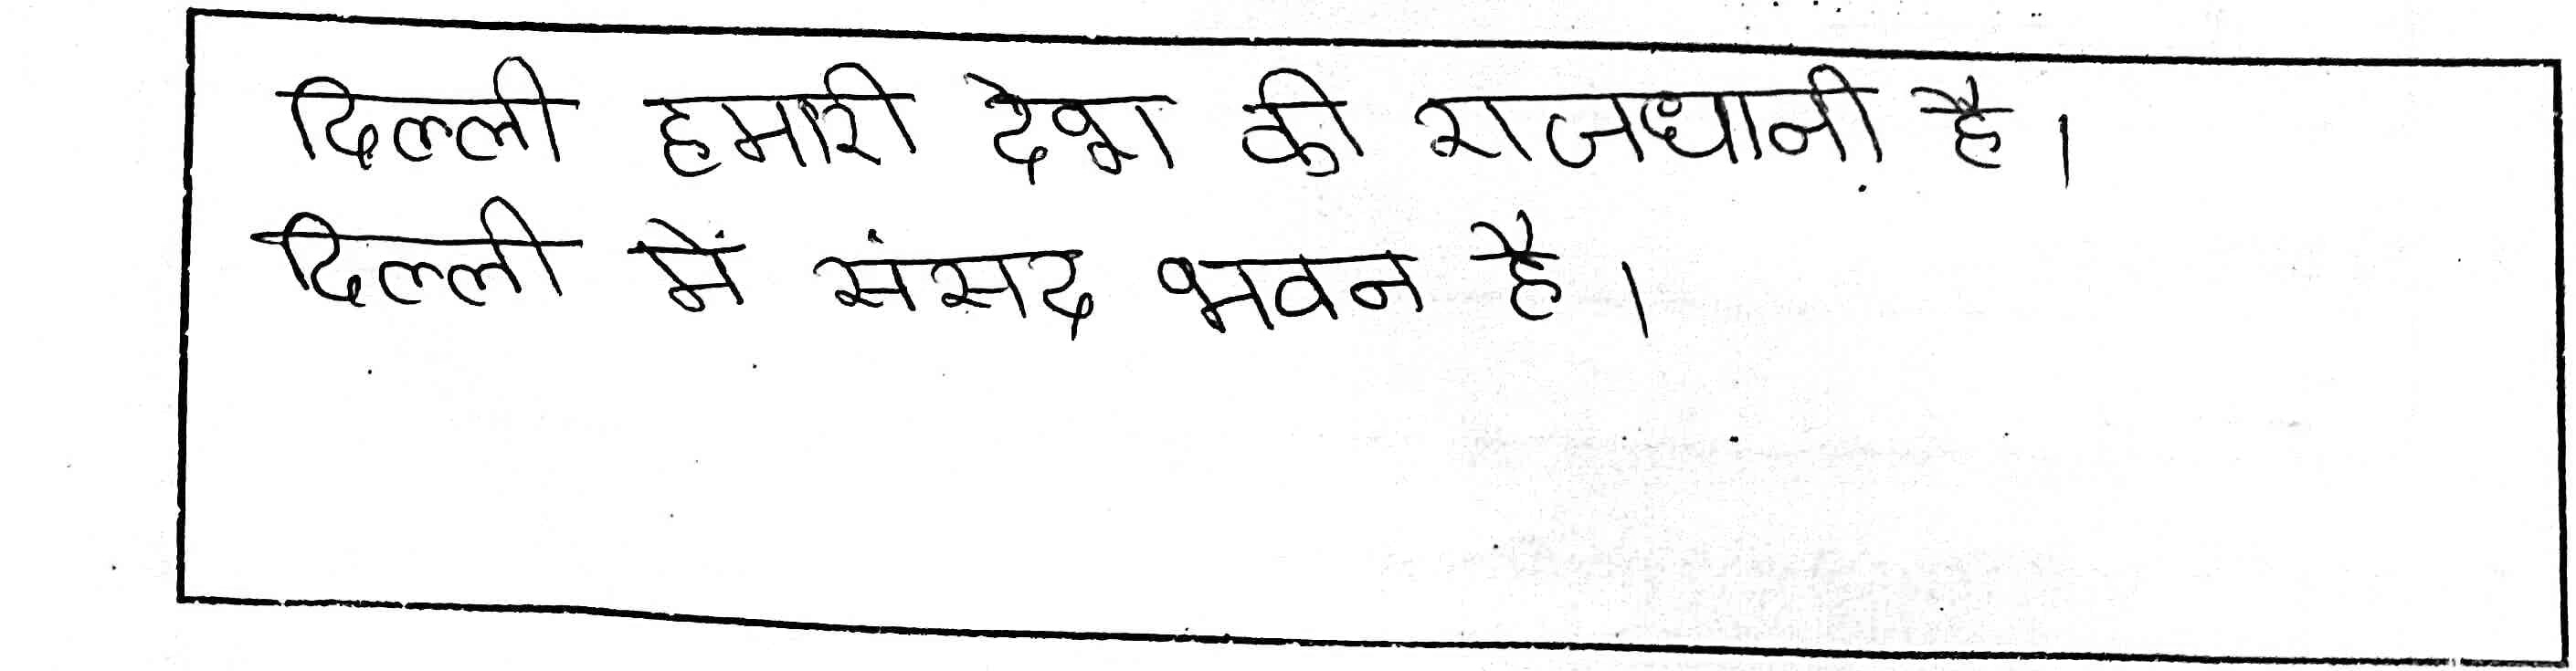 दिल्ली हमारी देश की राजधानी है।
दिल्ली में संसद भवन है।